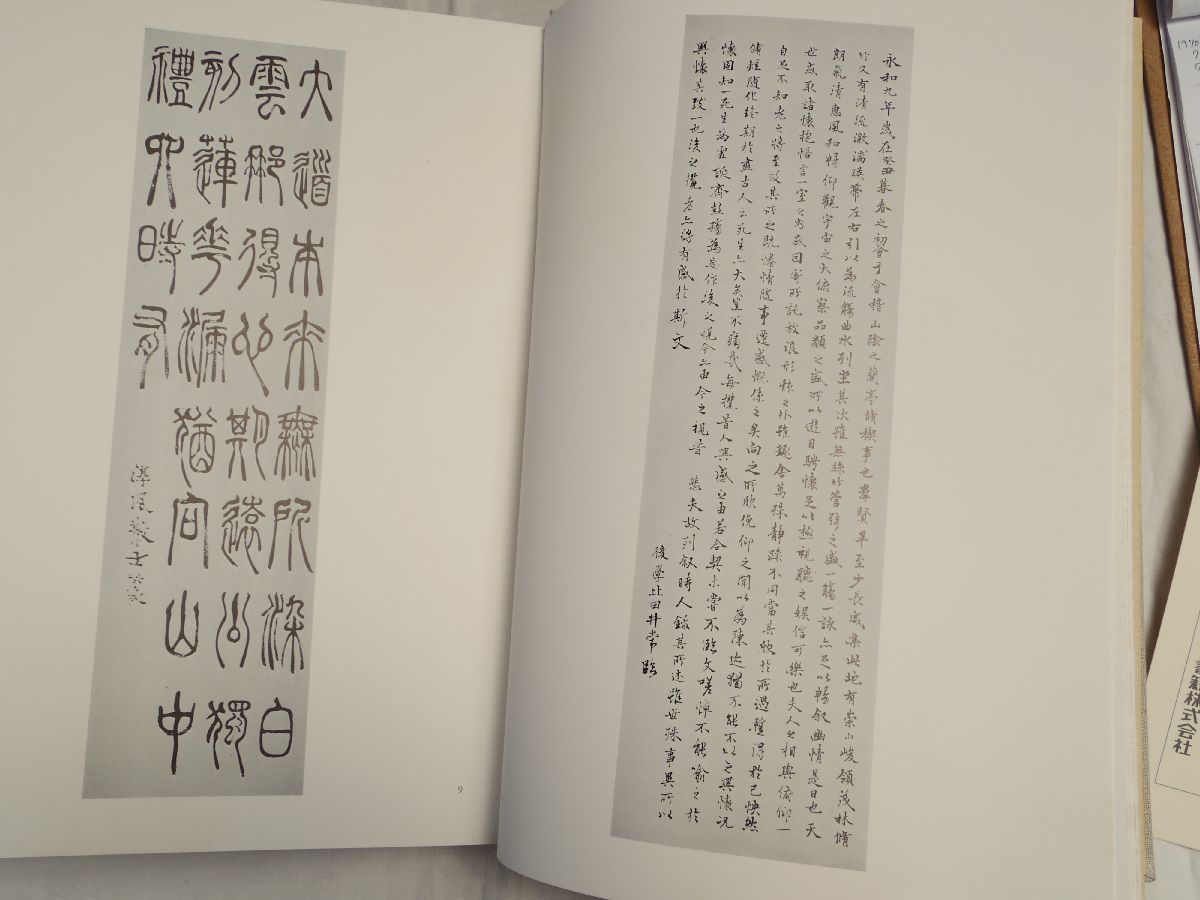 大道本來無所染白
雲那得心期遠公獨
刻蓮花漏猶向山中
禮六時有
9
永和九年歲在癸丑暮春之初會于會稽山陰之蘭亭脩稧事也羣賢畢至少長咸集此地有崇山峻領茂林脩
竹又有清流激湍暎帶左右引以為流觴曲水列坐其次雖無絲竹管弦之盛一觴一詠亦足以暢叙幽情是日也天
朗氣清惠風和暢仰觀宇宙之大俯察品類之盛所以遊目騁懷足以極視聽之娛信可樂也夫人之相與俯仰一
世或取諸懷抱悟言一室之內或因寄所託放浪形骸之外雖趣舍萬殊靜躁不同當其欣於所遇暫得於己怏然
自足不知老之將至及其所之既惓情隨事遷感慨係之矣向之所欣俛仰之間以為陳迹猶不能不以之興懷況
脩短隨化終期於盡古人云死生亦大矣豈不痛哉每攬昔人興感之由若合契未嘗不臨文嗟悼不能喻之於
懷固知一死生為虛誕齊彭殤為妄作後之視今亦由今之視昔 悲夫故列叙時人錄其所述雖世殊事異所以
興懷其致一也後之攬者亦將有感於斯文
後學比田井常臨
1970
書籍株式会社